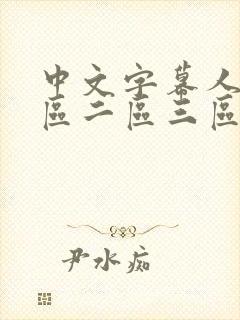 中文字幕人
區二區三區
尹水痴